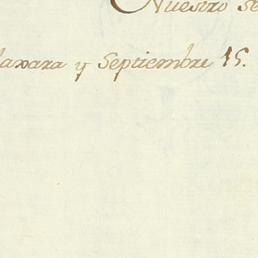 Nuestro se
laxara y Septiembre 15.